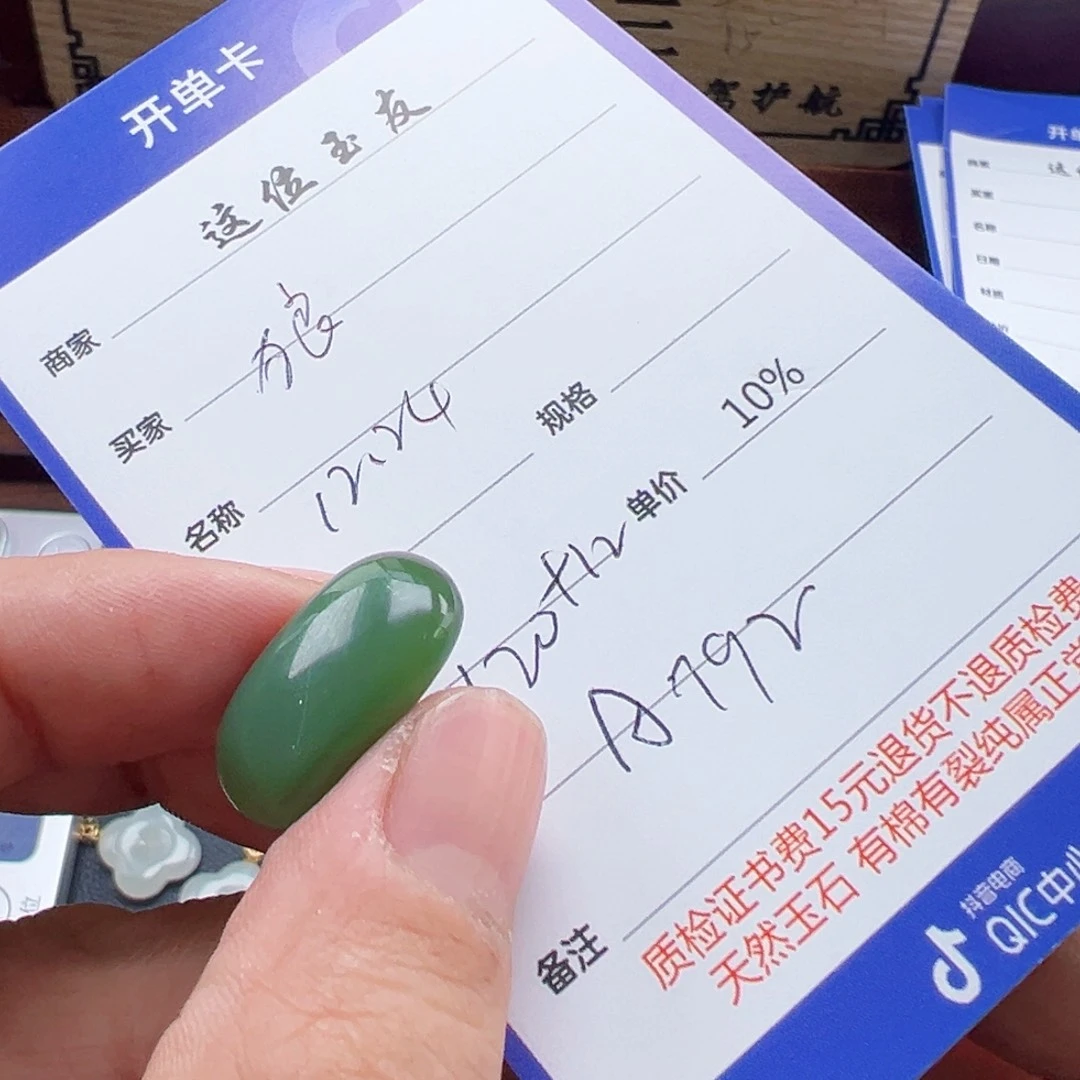 开单卡
商家 这位玉友
买家 狼
名称 12.24
规格
单价 10%
120+12
A792
备注 质检证书费15元退货不退质检费
天然玉石 有棉有裂纯属正常
抖音电商
QIC中心
驾护航
开单
商家
买家
名称
日期
材质
位